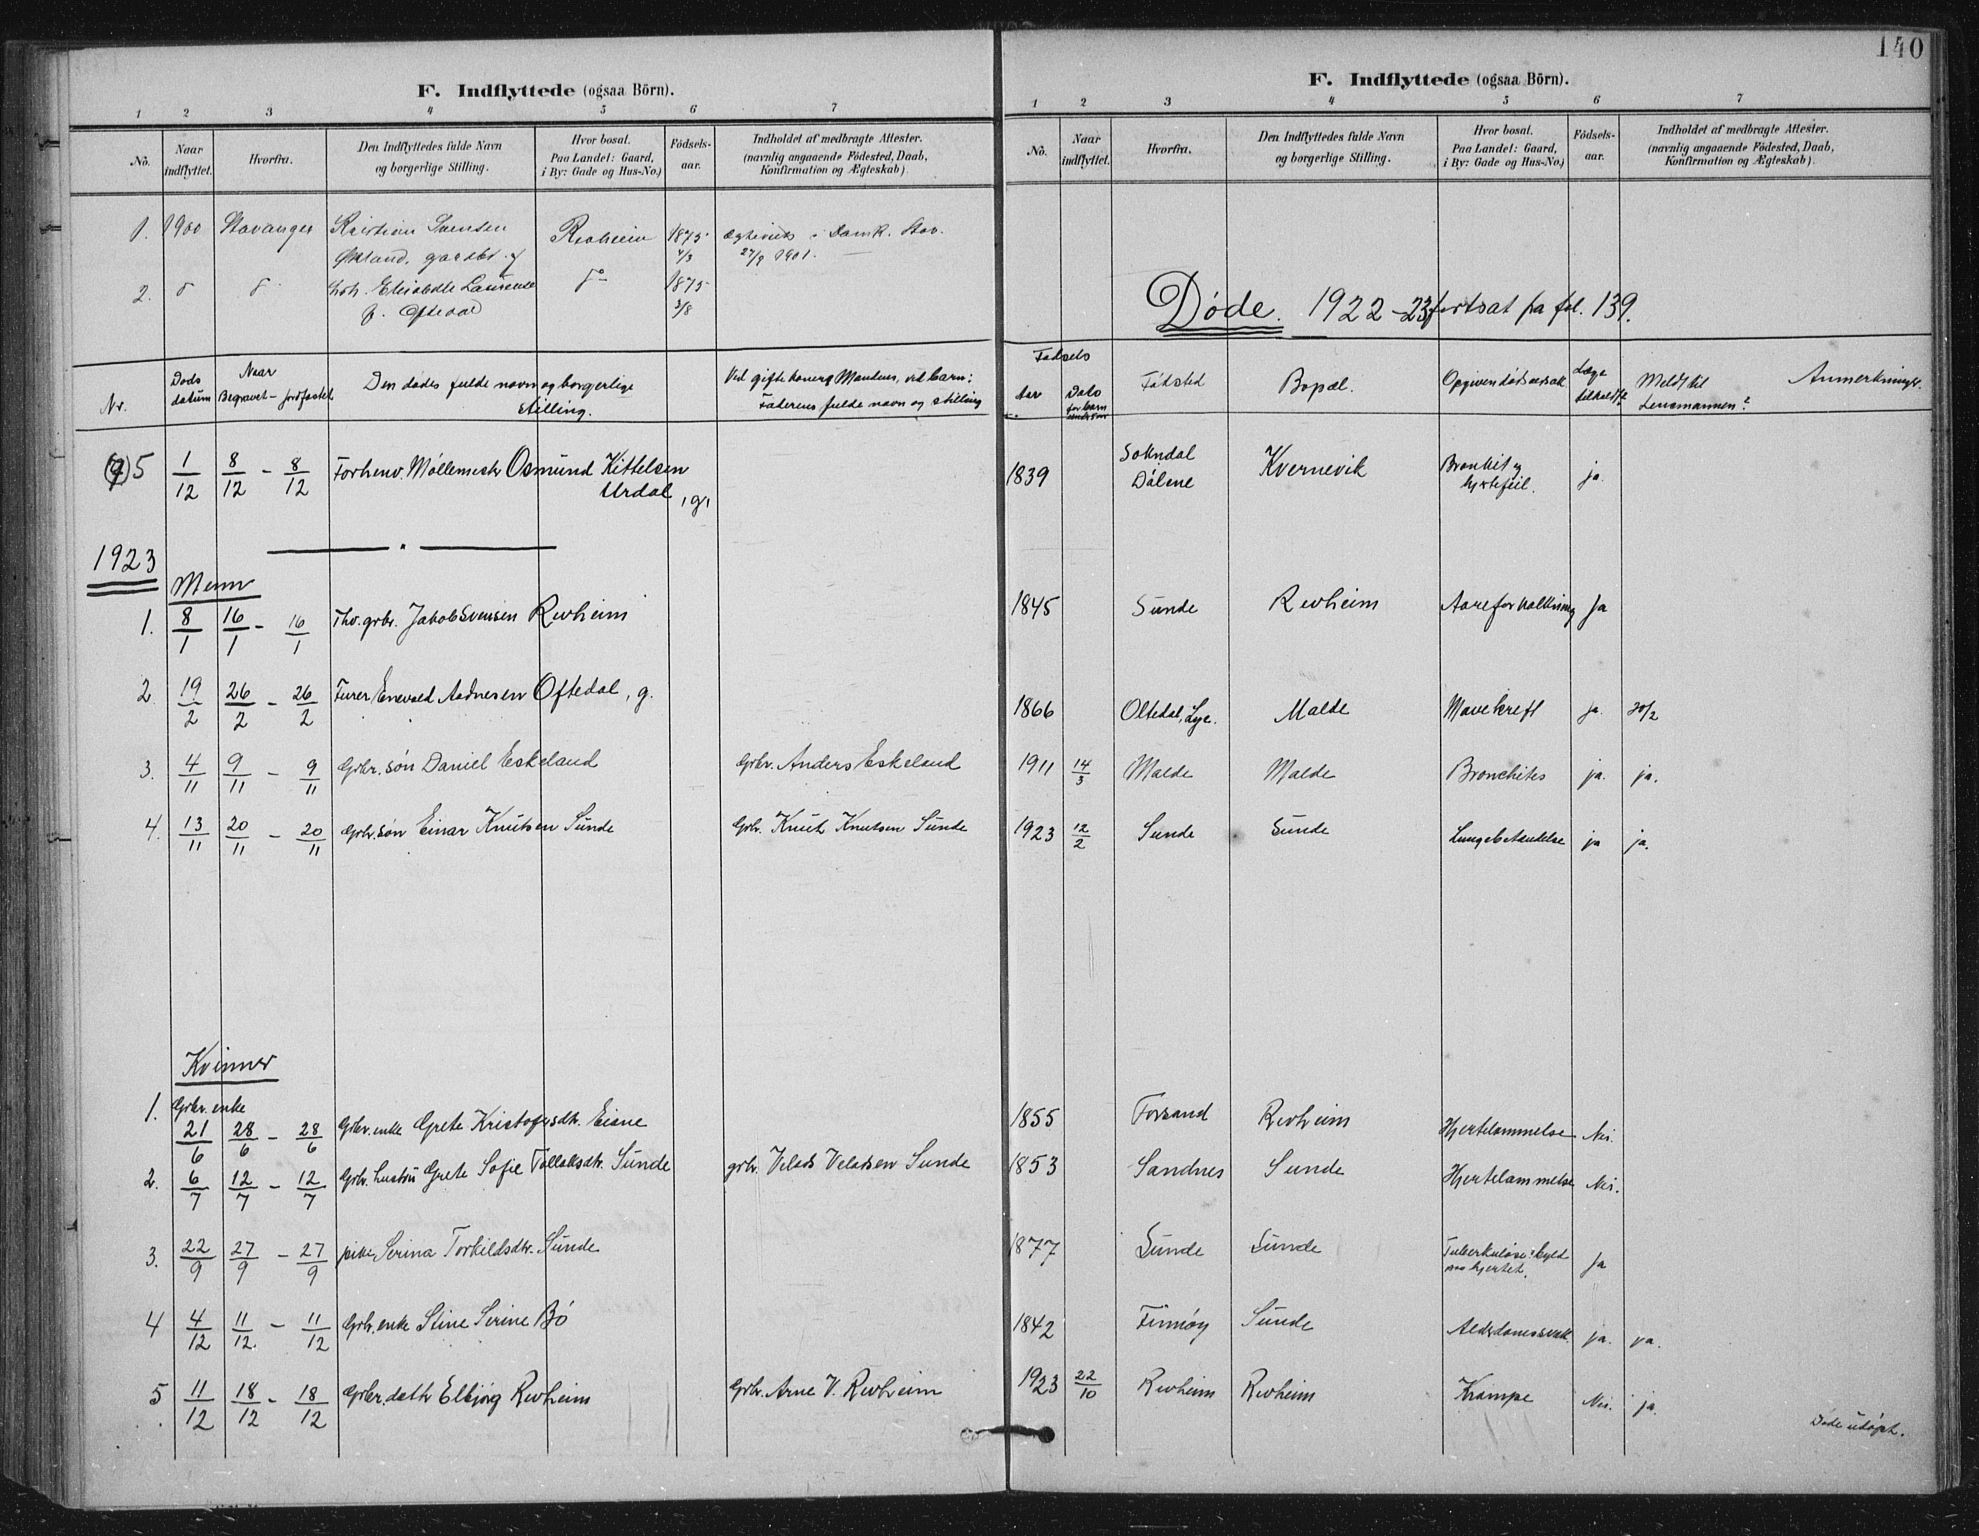 140
F. Indflyttede (ogsaa Börn).
1 2 3 4 5 6 7
No. Naar indflyttet. Hvorfra. Den Indflyttedes fulde Navn og borgerlige Stilling. Hvor bosat. Paa Landet: Gaard, i By: Gade og Hus-No.) Födsels-aar. Indholdet af medbragte Attester. (navnlig angaaende Födested, Daab, Konfirmation og Ægteskab).
1. 1900 Stavanger Kristian Svensen Revheim 1875 Ægteviet i Domk. Stav.
gardbr. 4/3 27/9 1901.
2. Elisabeth 1875
f. Oftedal 3/8
Nr. Døds datum Naar Begravet – jordfæstet Den dødes fulde navn og borgerlige stilling. Ved gifte koner: Mandens, ved barn: Faderens fulde navn og stilling
5 1/12 8/12 – 8/12 Forhenv. Møllemestr Osmund Kittelsen
Urdal, g,
1923
Menn
1. 8/1 16/1 – 16/1 grbr. Jakob Svensen Revheim
2 19/2 26/2 – 26/2 Enevald Aadnesen Oftedal, g.
3. 4/11 9/11 – 9/11 Grbr. søn Daniel Eskeland Grbr. Anders Eskeland
4. 13/11 20/11 – 20/11 Grbr. søn Einar Knutsen Sunde Grbr. Knut Knutsen Sunde
Kvinner
1. Grbr. enke
21/6 28/6 – 28/6 Grbr. enke Grete Kristofersdtr. Eisne
2. 6/7 12/7 – 12/7 Grbr. hustru Grete Sofie Tollaksdtr. Sunde grbr. Velads Veladsen Sunde
3. 22/9 27/9 – 27/9 pike, Serina Torkildsdtr. Sunde
4 4/12 11/12 – 11/12 Grbr. enke Stine Serine Bø
5 11/12 18/12 – 18/12 Grbr. dattr Elbjørg Revheim Grbr. Arne V. Revheim
F. Indflyttede (ogsaa Börn).
1 2 3 4 5 6 7
No. Naar indflyttet. Hvorfra. Den Indflyttedes fulde Navn og borgerlige Stilling. Hvor bosat. Paa Landet: Gaard, i By: Gade og Hus-No.) Födsels-aar. Indholdet af medbragte Attester. (navnlig angaaende Födested, Daab, Konfirmation og Ægteskab).
Døde. 1922–23 fortsat fra fol. 139.
Fødsels
Aar Dato for barn under 5 aar Fødsted Bopæl. Opgiven dødsaarsak Læge tilkaldt? Meldt til Lensmannen? Anmerkninger.
1839 Sokndal Dølene Kvernevik Bronkit og hjertefeil. ja.
1845 Sunde Revheim Aareforkalkning Ja
1866 Oltedal, Lye. Malde Mavekreft ja. 20/2
1911 14/3 Malde Malde Bronchites ja. ja.
1923 12/2 Sunde Sunde Lungebetændelse ja ja.
1855 Forsand Revheim Hjertelammelse Nei.
1853 Sandnes Sunde Hjertelammelse Nei.
1877 Sunde Sunde Tuberkuløse byld hjertet. Ja
1842 Finnøy Sunde Alderdomssvak. ja. ja.
1923 22/10 Revheim Revheim Krampe Nei. ja.
Døde udøpt.